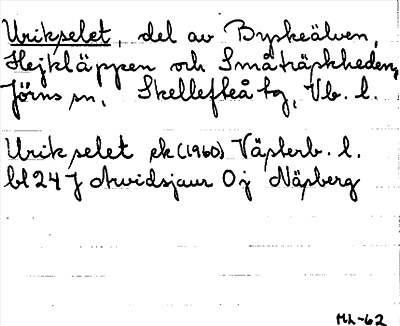 Urikselet, del av Byskeälven,
Hejkläppen och Småträskheden,
Jörns sn, Skellefteå tg, Vb. l.
Urikselet ek (1960) Västerb. l.
bl 24 J Arvidsjaur 0j Näsberg
HL-62